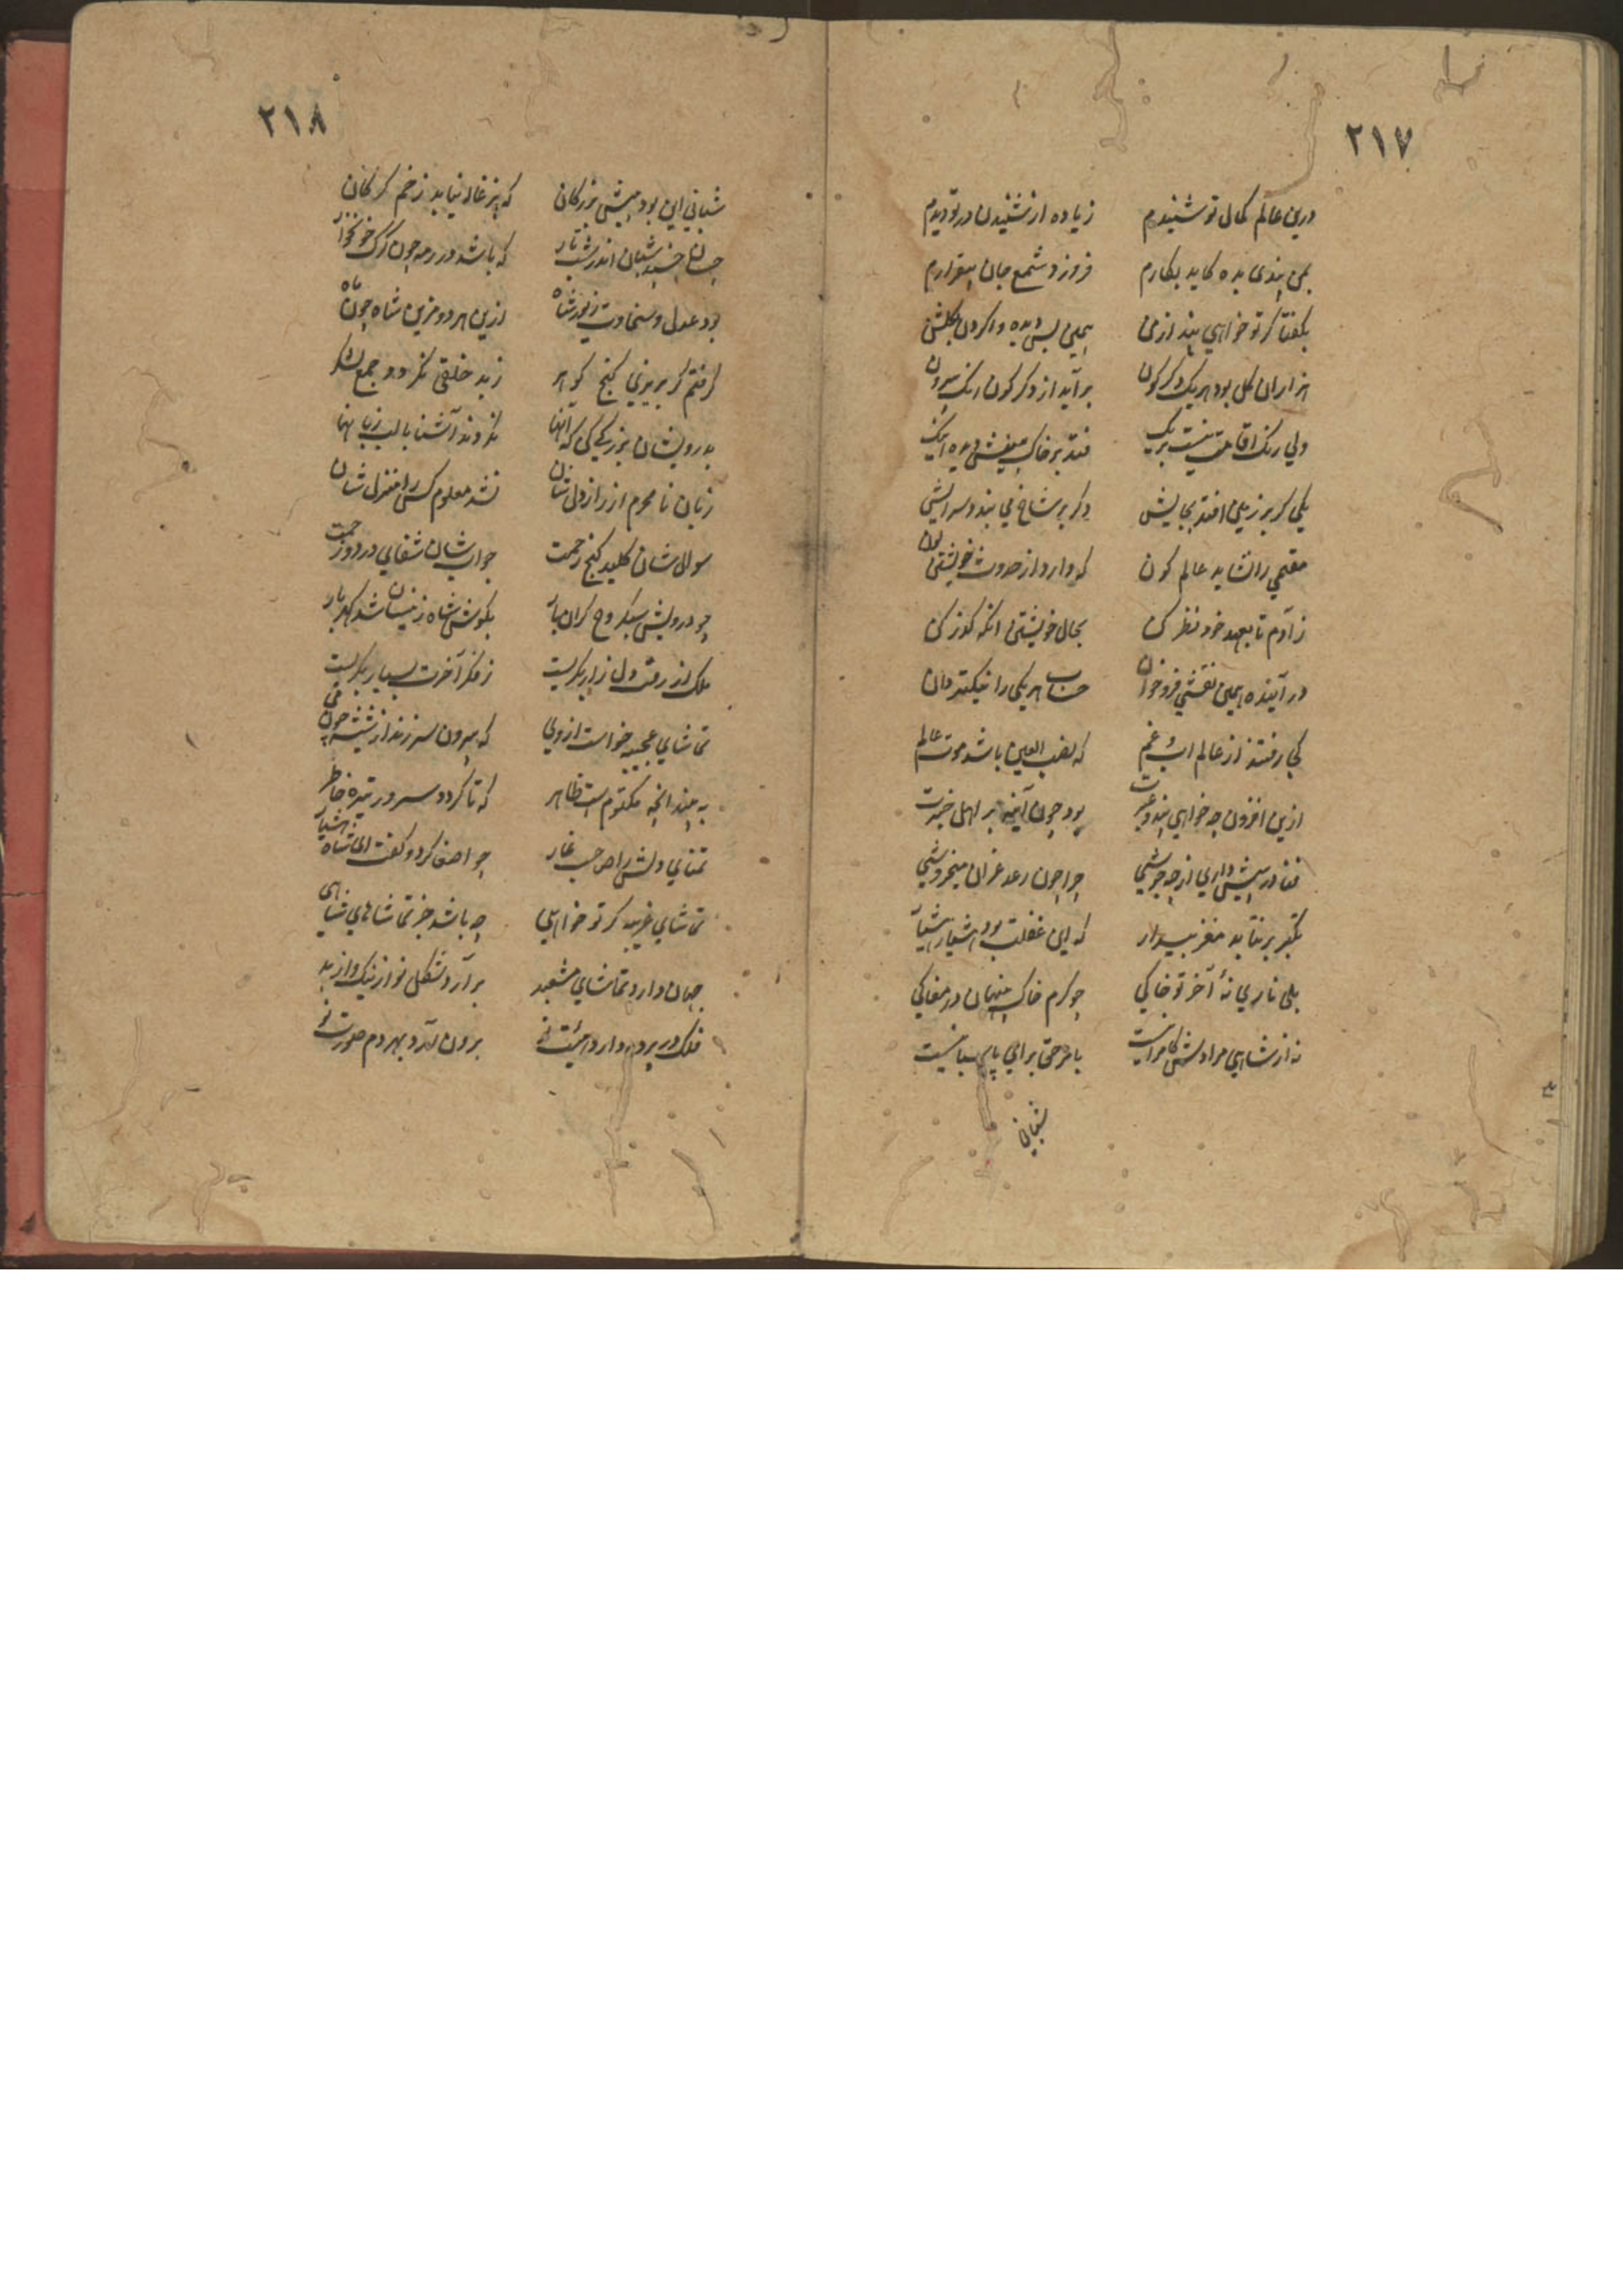 ٢١٧
درین عالم کمال تو شنیدم زیاده از شنیدن در تو دیدم
بمن پندی بده کاید بکارم فروزد شمع جان بیقرارم
بگفتا گر تو خواهی پند از من همین بس دیده وا کردن بگلشن
هزاران گل بود هریک دگرگون برآید از دگرگون رنگ بیرون
ولی رنگ اقامت نیست بریک فتد بر خاک بینش دیده اینک
یکی گر بر زمین افتد بجایش دگر بر شاخ می بندد سرایش
مقیمی را نشاید عالم کون که دارد از حدوث خویشتن لون
ز آدم تا بعهد خود نظر کن بحال خویشتن آنگه گذر کن
در آینده همین نقشی فرو خوان حساب هریکی را نیکتر دان
کجا رفتند از عالم اب و عم که نصب العین باشد موت عالم
ازین افزون چه خواهی پند و عبرت بود چون آینه بر اهل خبرت
فنا در پیش داری از چه جوشی چرا چون رعد غران میخروشی
تکبر بر نتابد مغز بیدار که این غفلت بود هشیار هشیار
بلی ناری نهٔ آخر تو خاکی چو کرم خاک پنهان در مغاکی
نه از شاهی مرادش کامرانیست بامر حق برای پاسبانیست
شبانی
٢١٨
شبانی این بود پیش بزرگان که بزغاله نیابد زخم گرگان
چسان خسپد شبان اندر شب تار که باشد در رمه چون گرگ خونخوار
بود عدل و سخاوت زیور شاه ازین هر دو مزین شاه چون ماه
گرفتم گر بریزی گنج گوهر ز بد خلقی نگردد جمع لشکر
بدرویشان بزرگی کن که آنها نگردند آشنا با لب زبانها
زبان نامحرم از راز دل شان نشد معلوم کس را منزل شان
سوال شان کلید گنج رحمت جواب شان شفای درد و زحمت
چو درویش سبکروح گران بار بگوش شاه ز نیسان شد گهربار
ملک از رقت دل زار بگریست ز فکر آخرت بسیار بگریست
تماشای عجیبه خواست از وی که بیرون سر زند از شیشه چون می
به بیند آنچه مکتوم است ظاهر که تا گردد سرور تیره خاطر
تمنای دلش را صاحب غار چو اصغا کرد و گفت ای شاه هشیار
تماشای غریبه گر تو خواهی چه باشد جز تماشاهای شاهی
جهان دارد تماشای مشعبد برآرد شکل نو از نیک و از بد
فلک در پرده دارد هیئت نو برون آرد بهر دم صورت نو